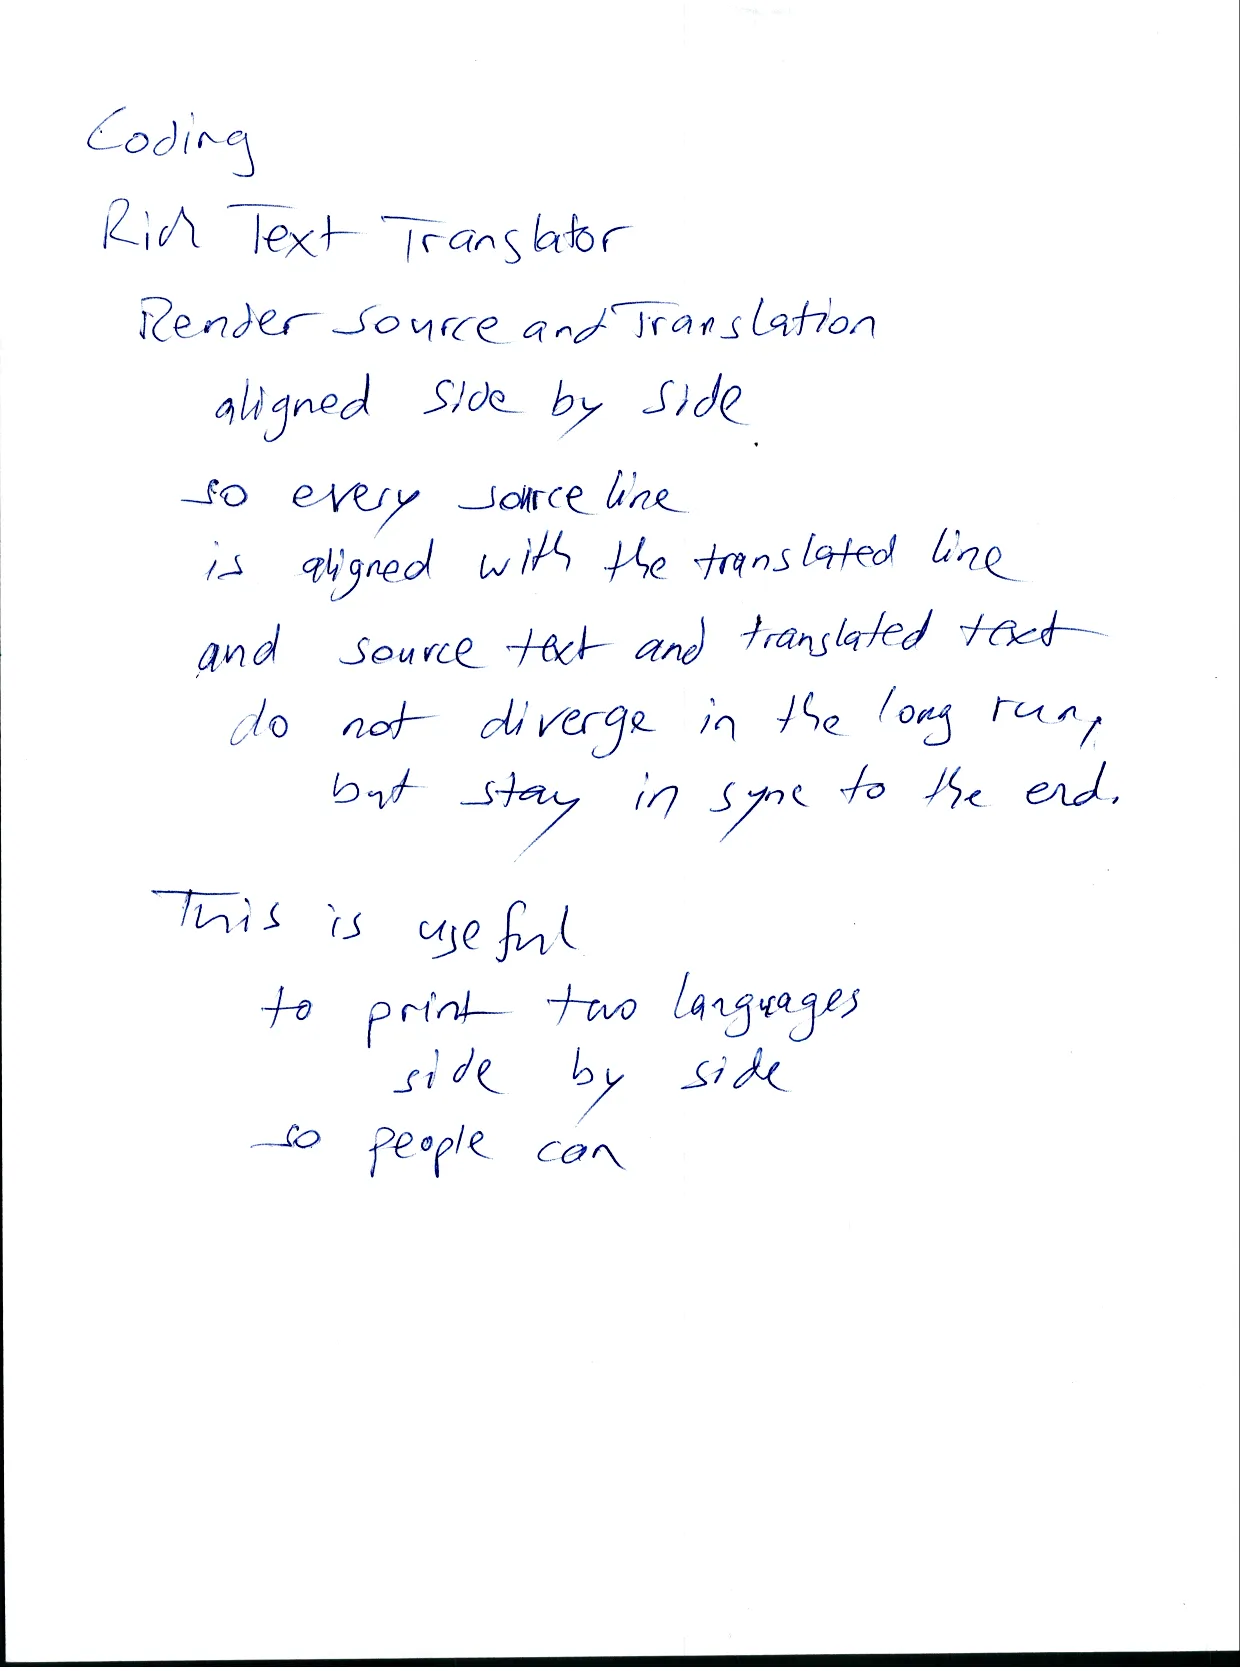 Coding
Rich Text Translator
Render Source and Translation
aligned side by side
so every source line
is aligned with the translated line
and source text and translated text
do not diverge in the long run,
but stay in sync to the end.
This is useful
to print two languages
side by side
so people can